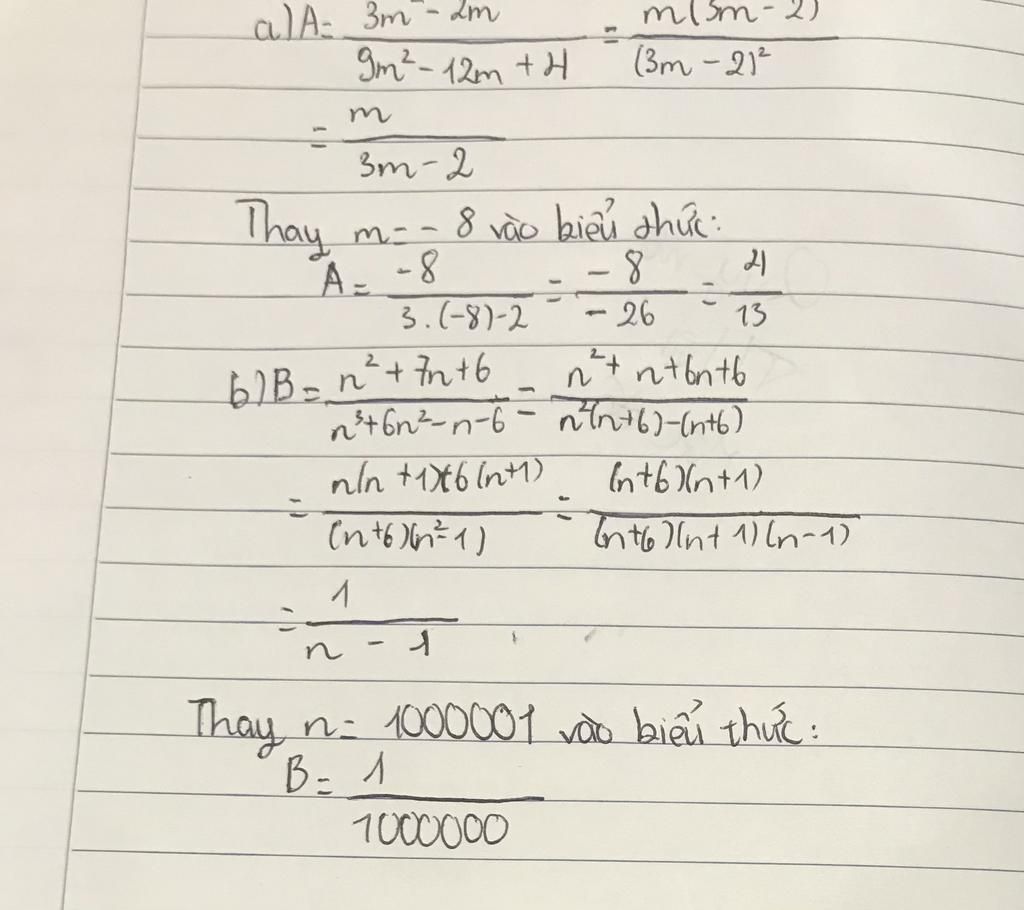 a) A = (3m² - 2m)/(9m² - 12m + 4) = m(3m - 2)/(3m - 2)²
= m/(3m - 2)
Thay m = - 8 vào biểu thức:
A = -8/(3.(-8)-2) = -8/-26 = 4/13
b) B = (n² + 7n + 6)/(n³ + 6n² - n - 6) = (n² + n + 6n + 6)/(n²(n+6) - (n+6))
= (n(n + 1) + 6(n+1))/((n+6)(n² - 1)) = (n+6)(n+1)/((n+6)(n+1)(n-1))
= 1/(n - 1)
Thay n = 1000001 vào biểu thức:
B = 1/1000000